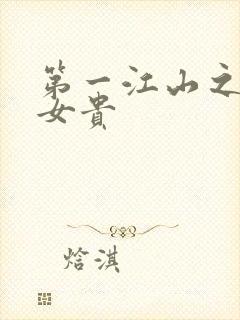 第一江山之
女贵
焓淇